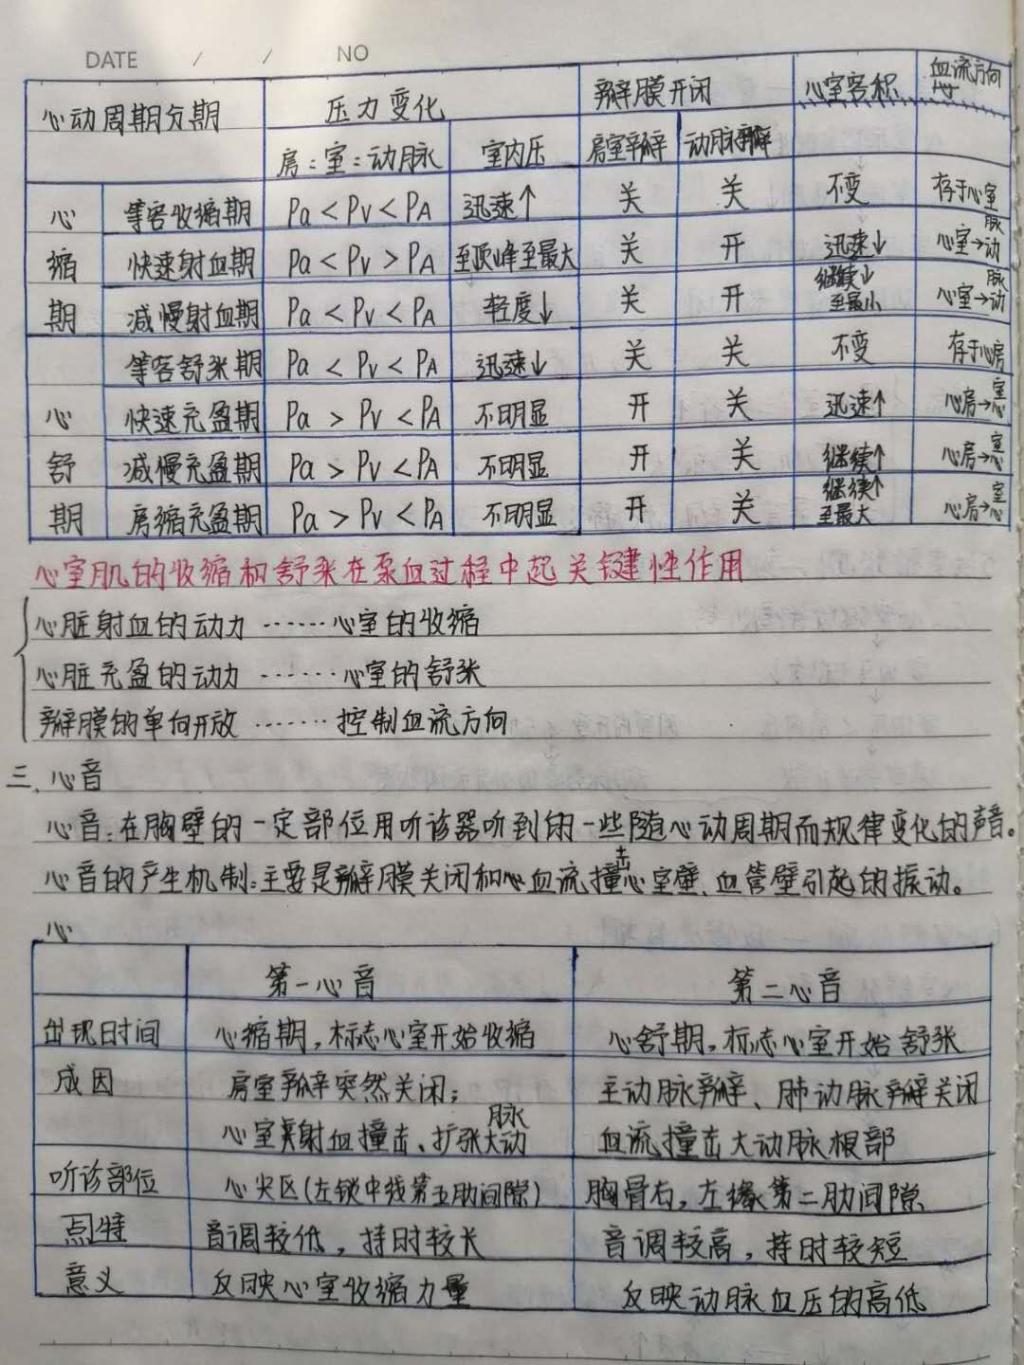 DATE / / NO
心动周期分期 压力变化 瓣膜开闭 心室容积 血流方向
房:室:动脉 室内压 房室瓣 动脉瓣
心 等容收缩期 Pa<Pv<PA 迅速↑ 关 关 不变 存于心室
缩 快速射血期 Pa<Pv>PA 至顶峰至最大 关 开 迅速↓ 心室→动脉
期 减慢射血期 Pa<Pv<PA 轻度↓ 关 开 继续↓至最小 心室→动脉
等容舒张期 Pa<Pv<PA 迅速↓ 关 关 不变 存于心房
心 快速充盈期 Pa>Pv<PA 不明显 开 关 迅速↑ 心房→心室
舒 减慢充盈期 Pa>Pv<PA 不明显 开 关 继续↑ 心房→心室
期 房缩充盈期 Pa>Pv<PA 不明显 开 关 继续↑至最大 心房→心室
心室肌的收缩和舒张在泵血过程中起关键性作用
心脏射血的动力 ······ 心室的收缩
心脏充盈的动力 ······ 心室的舒张
瓣膜的单向开放 ······· 控制血流方向
三、心音
心音:在胸壁的一定部位用听诊器听到的一些随心动周期而规律变化的声音。
心音的产生机制:主要是瓣膜关闭和心血流撞击心室壁、血管壁引起的振动。
心
第一心音 第二心音
出现时间 心缩期,标志心室开始收缩 心舒期,标志心室开始舒张
成因 房室瓣突然关闭; 主动脉瓣、肺动脉瓣关闭
心室射血撞击、扩张大动脉 血流撞击大动脉根部
听诊部位 心尖区(左锁中线第五肋间隙) 胸骨右,左缘第二肋间隙
点特 音调较低,持时较长 音调较高,持时较短
意义 反映心室收缩力量 反映动脉血压的高低